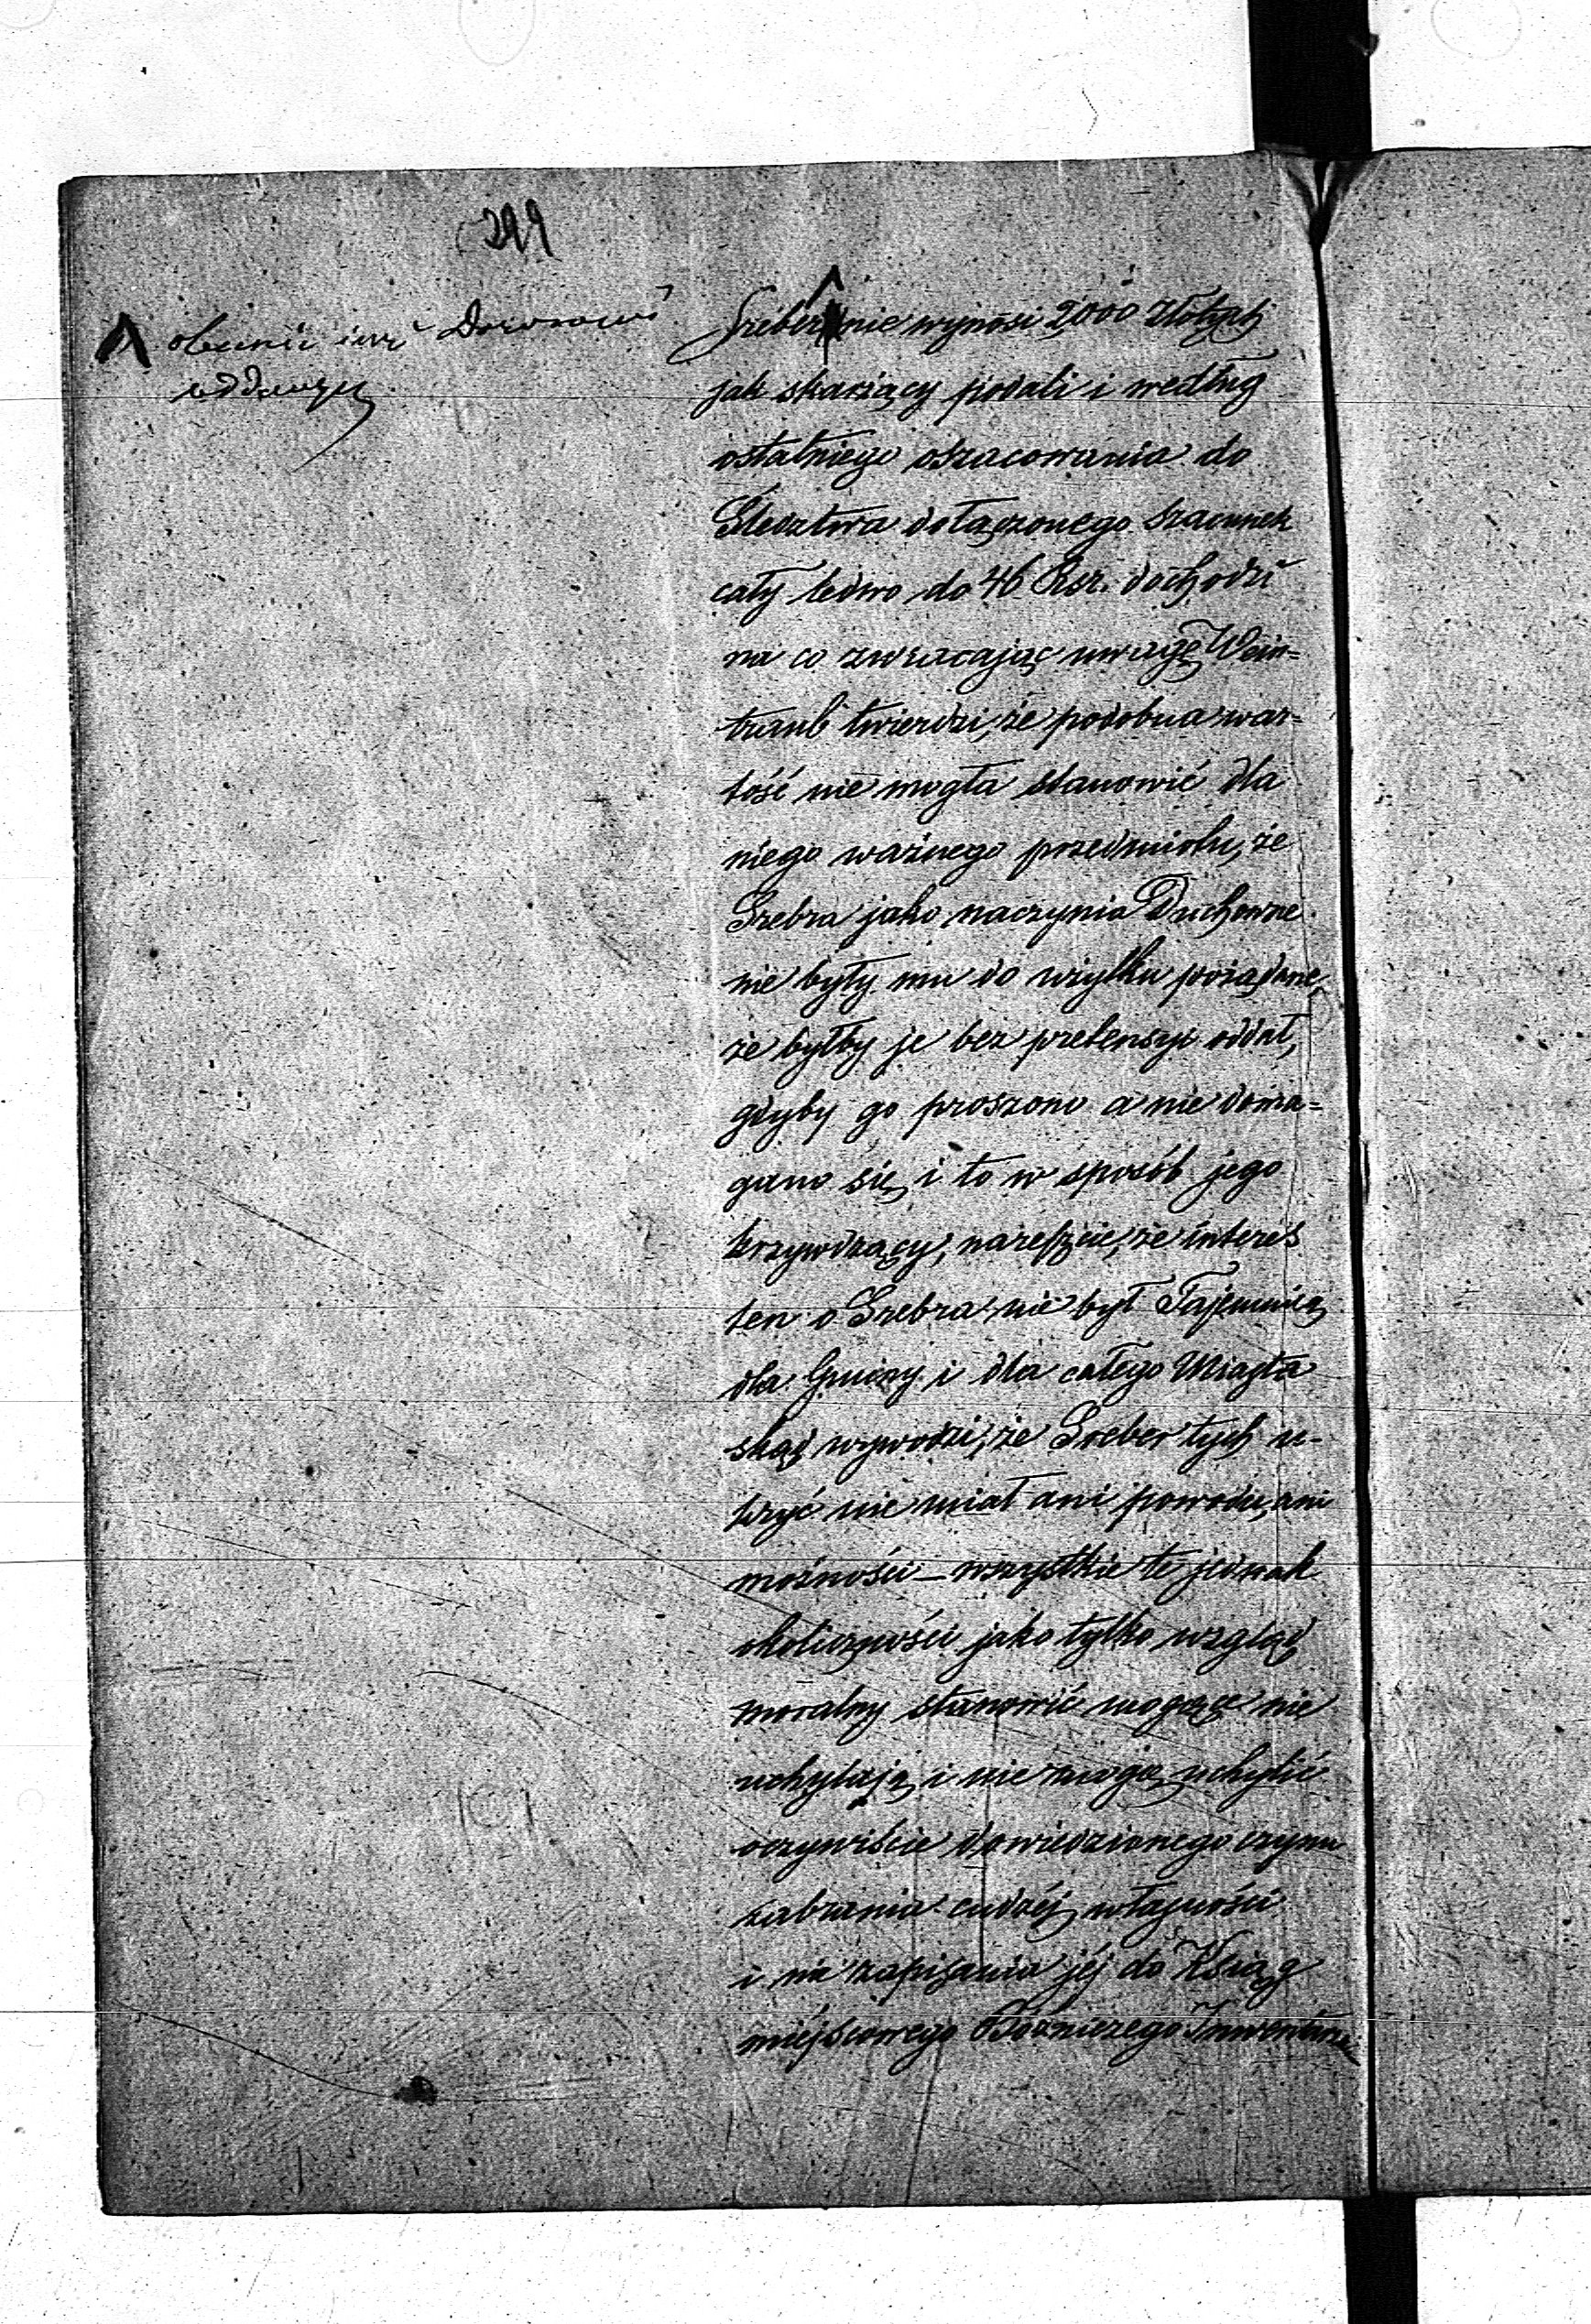 299
obecnie iuż Dozorowi
oddanych
Sreber nie wynosi 2000 złotych
jak skarżący podali i według
ostatniego oszacowania do
Sledztwa dołączonego szacunek
cały ledwo do 46 Rsr. dochodzi
na co zwracając uwagę Wein=
traub twierdzi, że podobna war=
tość nie mogła stanowić dla
niego ważnego przedmiotu, że
Srebra jako naczynia Duchowne
nie były mu do użytku pożądane,
że byłby je bez pretensyi oddał,
gdyby go proszono a nie doma=
gano się i to w sposób jego
krzywdzący, nareszcie, że interes
ten o Srebra nie był Tajemnicą
dla Gminy i dla całego Miasta
skąd wywodzi, że Sreber tych u=
kryć nie miał ani powodu, ani
możności – wszystkie te jednak
okoliczności jako tylko wzgląd
moralny stanowić mogące nie
uchylają i nie mogą uchylić
oczywiście dowiedzionego czynu
zabrania cudzéj własności
i nie zapisania jéj do Ksiąg
miéjscowego Bożniczego Inwentarza